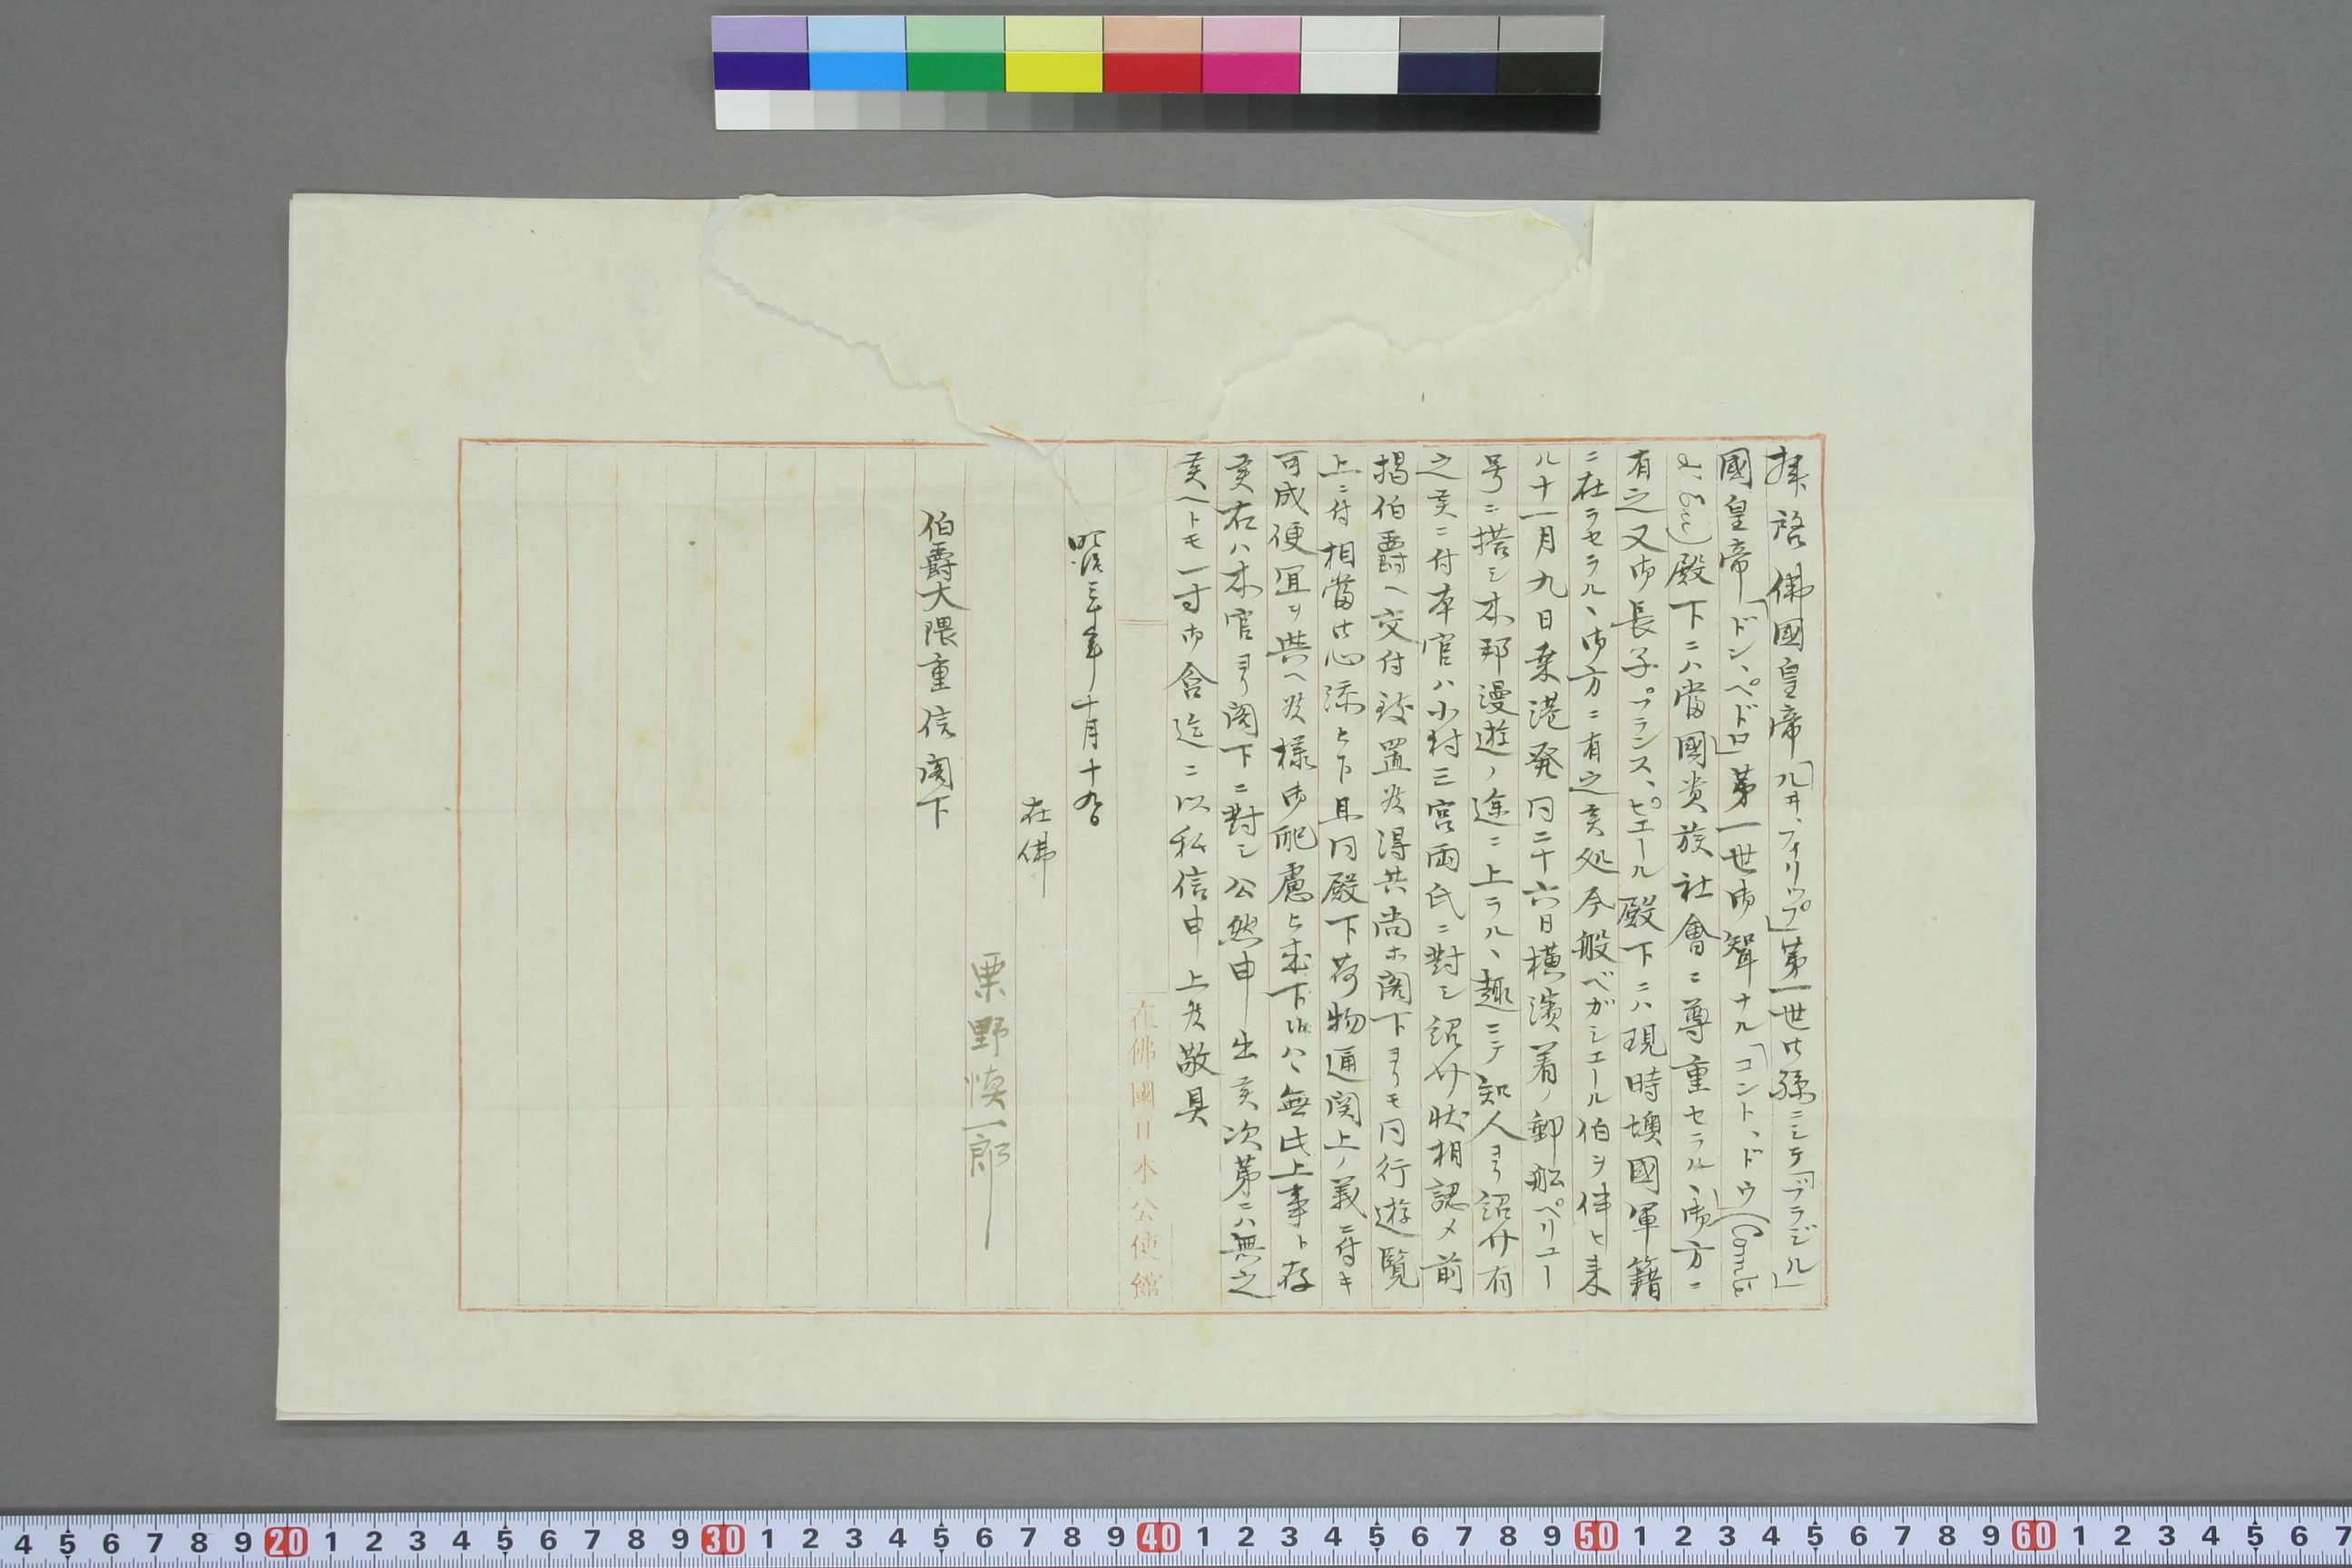 拝啓佛國皇帝「ルヰ、フィリップ」第一世ノ孫ニシテ「ブラジル」
國皇帝「ドン、ペドロ」第一世御聟ナル「コント、ドウ」(Comte
d'Eu)殿下ニハ當國貴族社會ニ尊重セラル、御方ニ
有之又御長子プランス、ピエール殿下ニハ現時墺國軍籍
ニ在ラセラル、御方ニ有之候処今般ベガシエール伯ヲ伴ヒ来
ル十一月九日桒港発同二十六日横濱着ノ郵船ペリユー
号ニ搭シ本邦漫遊ノ途ニ上ラル、趣ニテ知人ヨリ紹介有
之候ニ付本官ハ小村三宮両氏ニ對シ紹介状相認メ前
掲伯爵ヘ交付致置候得共尚ホ閣下ヨリモ同行遊覧
上ニ付相當御心添ヒ下且同殿下荷物通関上ノ義ニ付キ
可成便宜ヲ與ヘ候様御配慮ヒ成下候ハヽ無此上事ト存
候右ハ本官ヨリ閣下ニ對シ公然申出候次第ニハ無之
候ヘトモ一寸御含迄ニ以私信申上候敬具
在佛國日本公使館
明治三十年十月十九日
在佛
栗野慎一郎
伯爵大隈重信閣下
4 5 6 7 8 9 20 1 2 3 4 5 6 7 8 9 30 1 2 3 4 5 6 7 8 9 40 1 2 3 4 5 6 7 8 9 50 1 2 3 4 5 6 7 8 9 60 1 2 3 4 5 6 7